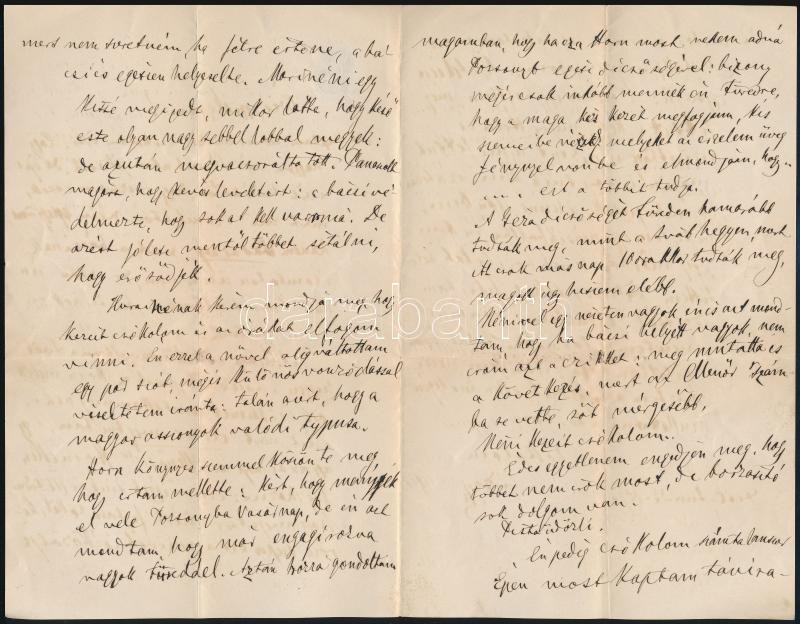 mert nem szeretném, ha félre értene, a bá-
csi is egészen helyeselte. Mari néni egy
kissé megijedt, mikor látta, hogy késő
este olyan nagy sebbel lobbal megyek:
de azután megvacsoráltatott. Panaszolt
magára, hogy kevés levelet írt: a bácsi vé-
delmezte, hogy sokat kell varrnia. De
azért jó lesz mentől többet sétálni,
hogy erősödjék.
kérem mondja meg, hogy
kezeit csókolom és az órákat el fogom
vinni. Én ezzel a nővel alig váltottam
egy pár szót, mégis különös vonzódással
viseltetem iránta: talán azért, hogy a
magyar asszonyok valódi typusa.
Horn könyes szemmel köszönte meg
hogy írtam mellette: kért, hogy menjek
el vele Pozsonyba vasárnap, de én azt
mondtam, hogy már engagirozva
vagyok Füreddel. Aztán hozzá gondoltam
magamban, hogy ha az a Horn most nekem adná
Pozsonyt egész dicsőségével: bizony
mégis csak inkább mennék én Füredre,
hogy a maga kis kezét megfogjam, kis
szemeibe nézzek melyeket az érzelem üveg
fénynyel von be és elmondjam, hogy
.... ezt a többit tudja.
A Géza dicsőségét Füreden hamarább
tudták meg, mint a Svábhegyen, mert
itt csak másnap 10 órakkor tudták meg,
maguk úgy hiszem előbb.
Nénivel egy nézeten vagyok én is azt mond-
tam, hogy ha bácsi helyett vagyok, nem
írom azt a czikket: meg mutatta is
a következés, mert az Ellenőr szám-
ba se vette, sőt mérgesebb.
Néni kezeit csókolom.
Édes egyetlenem engedjen meg, hogy
többet nem írok most, de borzasztó
sok dolgom van.
Pista üdvözli.
Én pedig csókolom számtalanszor
Épen most kaptam távira-
darabanth